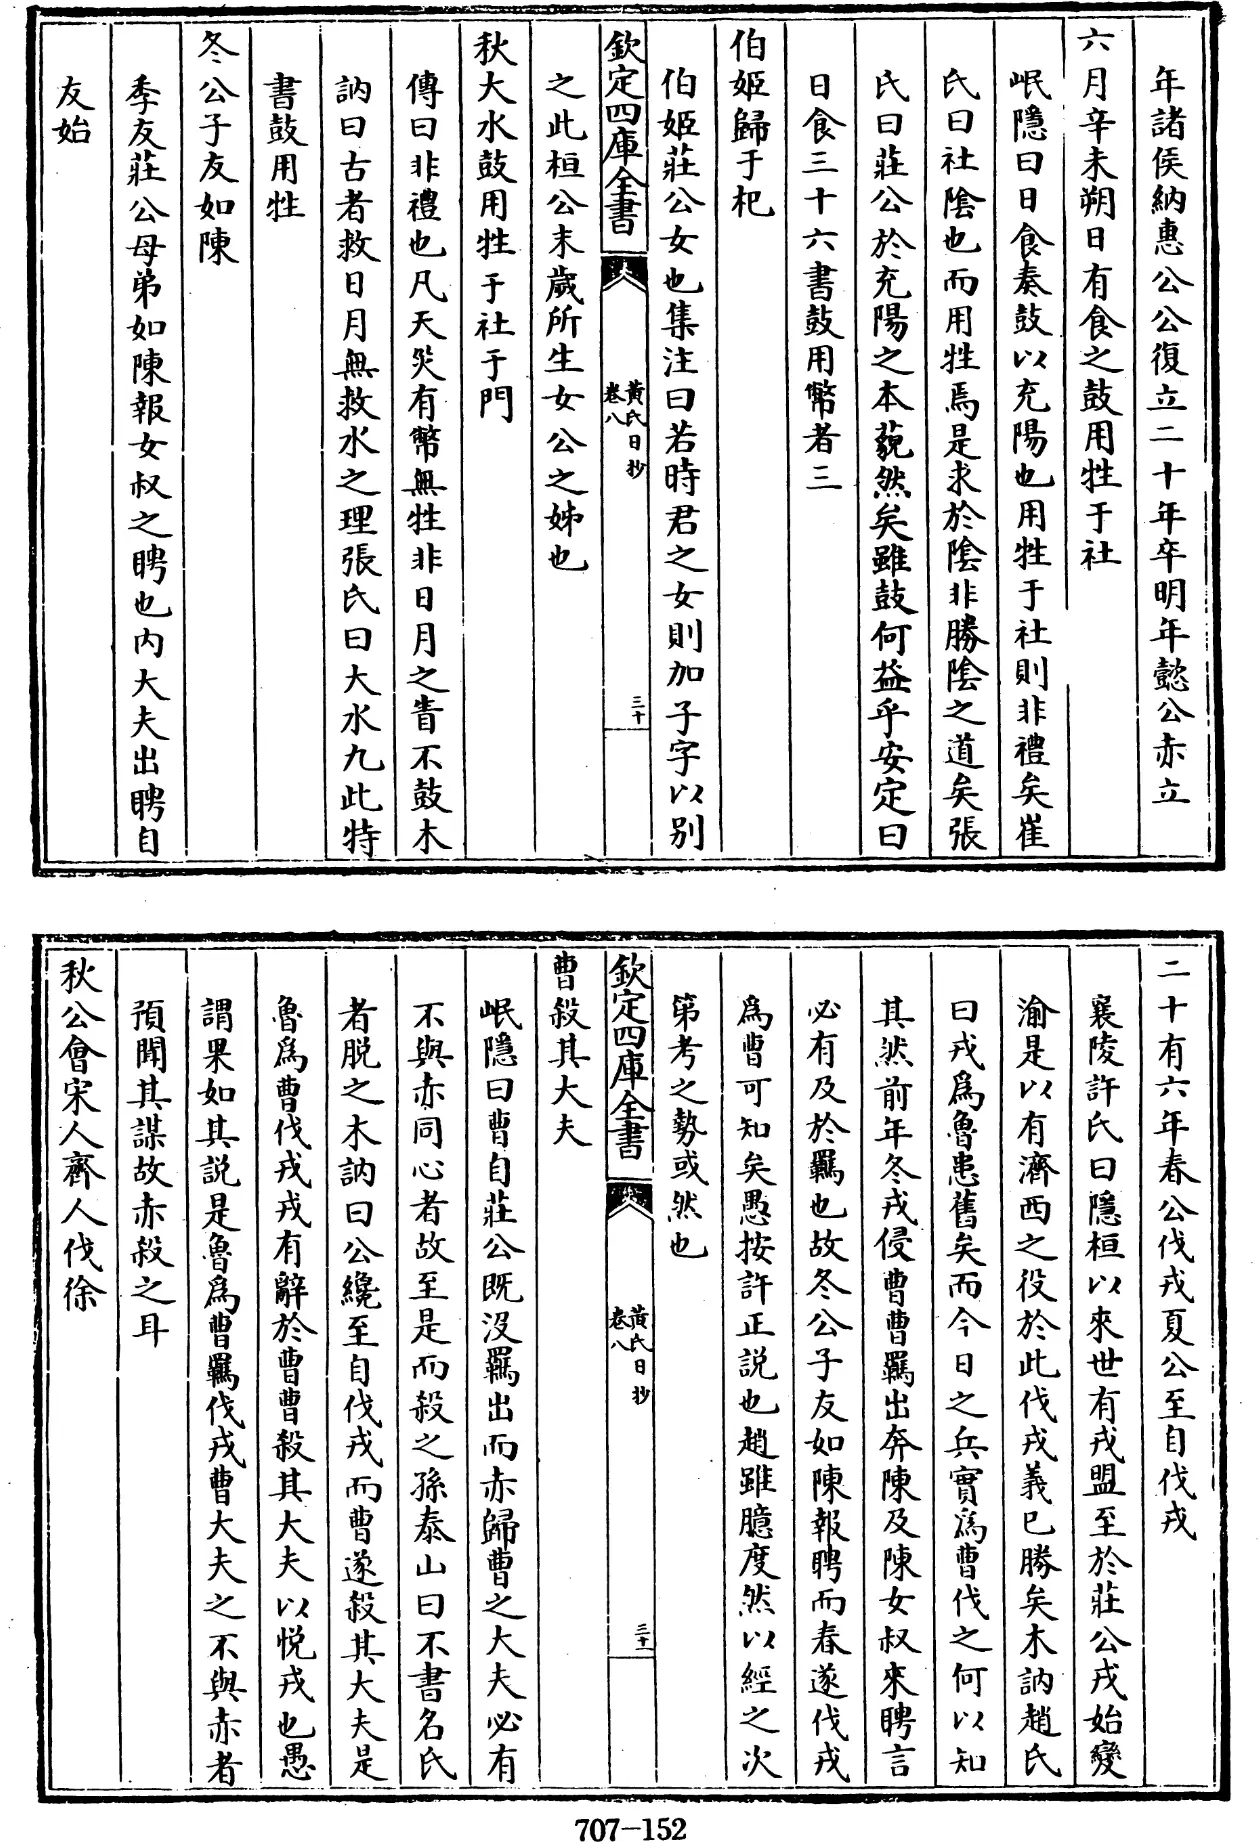 年諸侯納惠公公復立二十年卒明年懿公赤立
六月辛未朔日有食之鼓用牲于社
岷隱曰日食奏鼓以充陽也用牲于社則非禮矣崔
氏曰社陰也而用牲焉是求於陰非勝陰之道矣張
氏曰莊公於充陽之本藐然矣雖鼓何益乎安定曰
日食三十六書鼓用幣者三
伯姬歸于杞
伯姬莊公女也集注曰若時君之女則加子字以別
欽定四庫全書
黃氏日抄
卷八
三十
之此桓公末歲所生女公之姊也
秋大水鼓用牲于社于門
傳曰非禮也凡天災有幣無牲非日月之眚不鼓木
訥曰古者救日月無救水之理張氏曰大水九此特
書鼓用牲
冬公子友如陳
季友莊公母弟如陳報女叔之聘也内大夫出聘自
友始
二十有六年春公伐戎夏公至自伐戎
襄陵許氏曰隱桓以來世有戎盟至於莊公戎始變
渝是以有濟西之役於此伐戎義已勝矣木訥趙氏
曰戎為魯患舊矣而今日之兵實為曹伐之何以知
其然前年冬戎侵曹曹羈出奔陳及陳女叔來聘言
必有及於羈也故冬公子友如陳報聘而春遂伐戎
為曹可知矣愚按許正説也趙雖臆度然以經之次
第考之勢或然也
欽定四庫全書
黃氏日抄
卷八
三十一
曹殺其大夫
岷隱曰曹自莊公既没羈出而赤歸曹之大夫必有
不與赤同心者故至是而殺之孫泰山曰不書名氏
者脱之木訥曰公纔至自伐戎而曹遂殺其大夫是
魯為曹伐戎戎有辭於曹曹殺其大夫以悦戎也愚
謂果如其説是魯為曹羈伐戎曹大夫之不與赤者
預聞其謀故赤殺之耳
秋公會宋人齊人伐徐
707-152